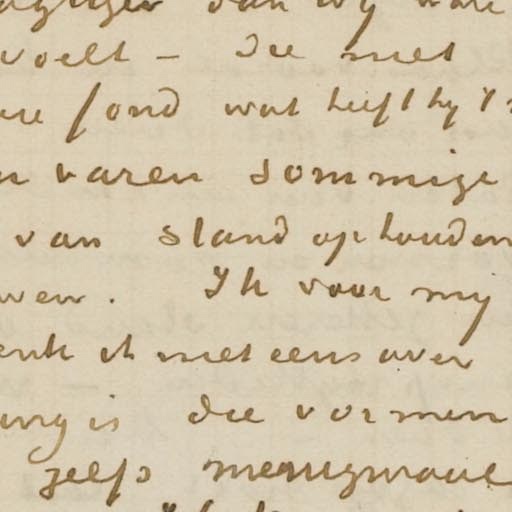 dan wy
voelt – die met
fond wat heeft hy
varen sommige
van stand ophouden
wen. Ik voor my
enk er met eens over
is die vormen
zelfs menigmaal